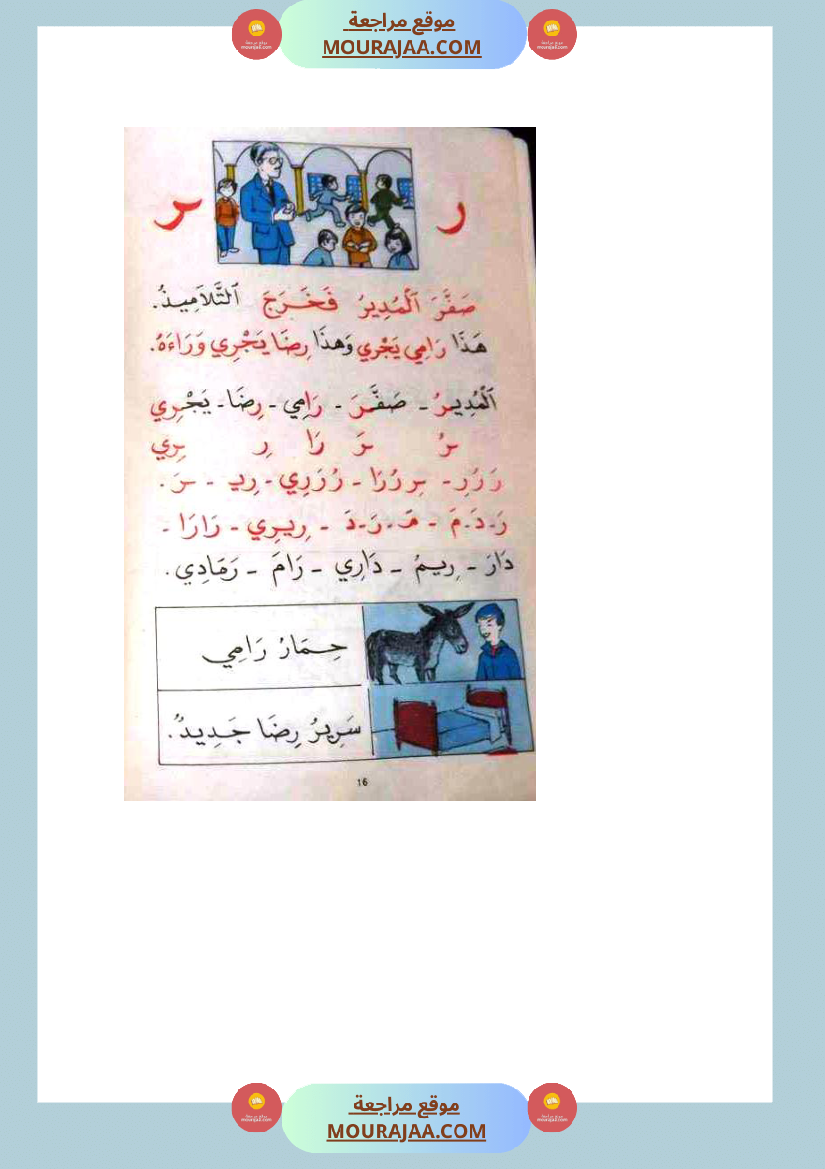 موقع مراجعة
MOURAJAA.COM
ر ـر
صَفَّرَ ٱلْمُدِيرُ فَخَرَجَ ٱلتَّلَامِيذُ.
هَذَا رَامِي يَجْرِي وَهذَا رِضَا يَجْرِي وَرَاءَهُ.
ٱلْمُدِيـرُ - صَفَّـرَ - رَامِي - رِضَا - يَجْـرِي
ـرُ ـرَ رَا رِ ـرِي
رَرُرِ - ـرِرُرَا - رُرَرِي - رِيـ - ـرَ .
رَ-دَ-مَ - مَـ-رَ-دَ - رِيـرِي - رَارَا -
دَارَ - رِيـمُ - دَارِي - رَامَ - رَمَادِي.
حِـمَارُ رَامِي
سَرِيرُ رِضَا جَـدِيـدٌ.
16
موقع مراجعة
MOURAJAA.COM